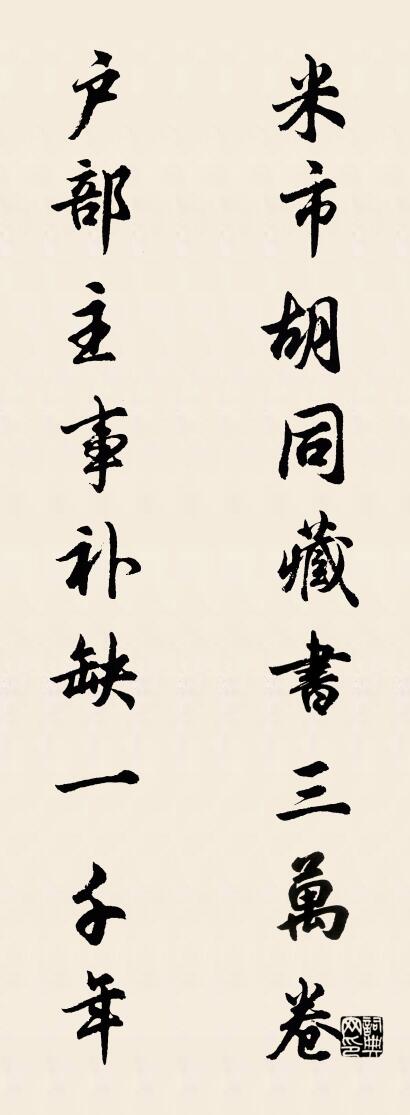 米市胡同藏書三萬卷
户部主事补缺一千年
詞典網印